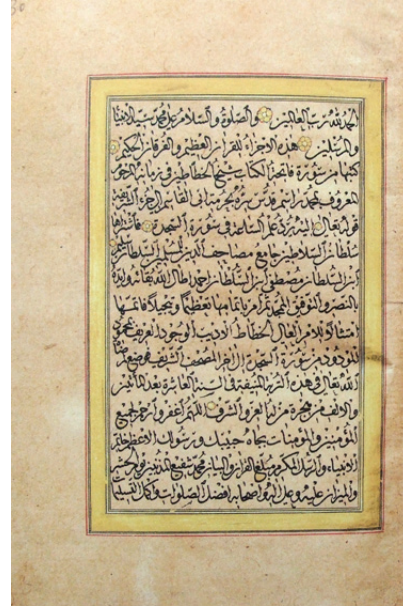 الحمد لله رب العالمين والصلوة والسلام على محمد سيد الانبياء
والمرسلين هذه الاجزاء للقران العظيم والفرقان الحكيم
كتبها من سورة فاتحة الكتاب شيخ الخطاطين في زمانه المرحوم
المعروف بمحمد راسم قدس سره بحرمة ابى القاسم الى الجزء الشريفة
قوله تعالى اليه يرد علم الساعة في سورة السجدة فاشتراها
سلطان السلاطين جامع مصاحف الدين السلطان سليم
ابن السلطان مصطفى ابن السلطان احمد اطال الله بقائه وايده
بالنصر والتوفيق ثم امر باتمامها تعظيما وتبجيلا فاتمها
امتثالا للامر العالي الخطاط الوجود العريف بمحمود
المودود من سورة السجدة الى اخر المصحف الشريف
الله تعالى في هذه الشهر المنيفة في السنة العاشرة بعد المأتين
والالف من هجرة من له العز والشرف اللهم اغفر وارحم جميع
المؤمنين والمؤمنات بجاه حبيبك ورسولك الاعظم خاتم
الانبياء المكرم مبلغ القران والبيان محمد شفيع المذنبين الحشر
والميزان عليه وعلى اله واصحابه افضل الصلوات واكمل التسليمات